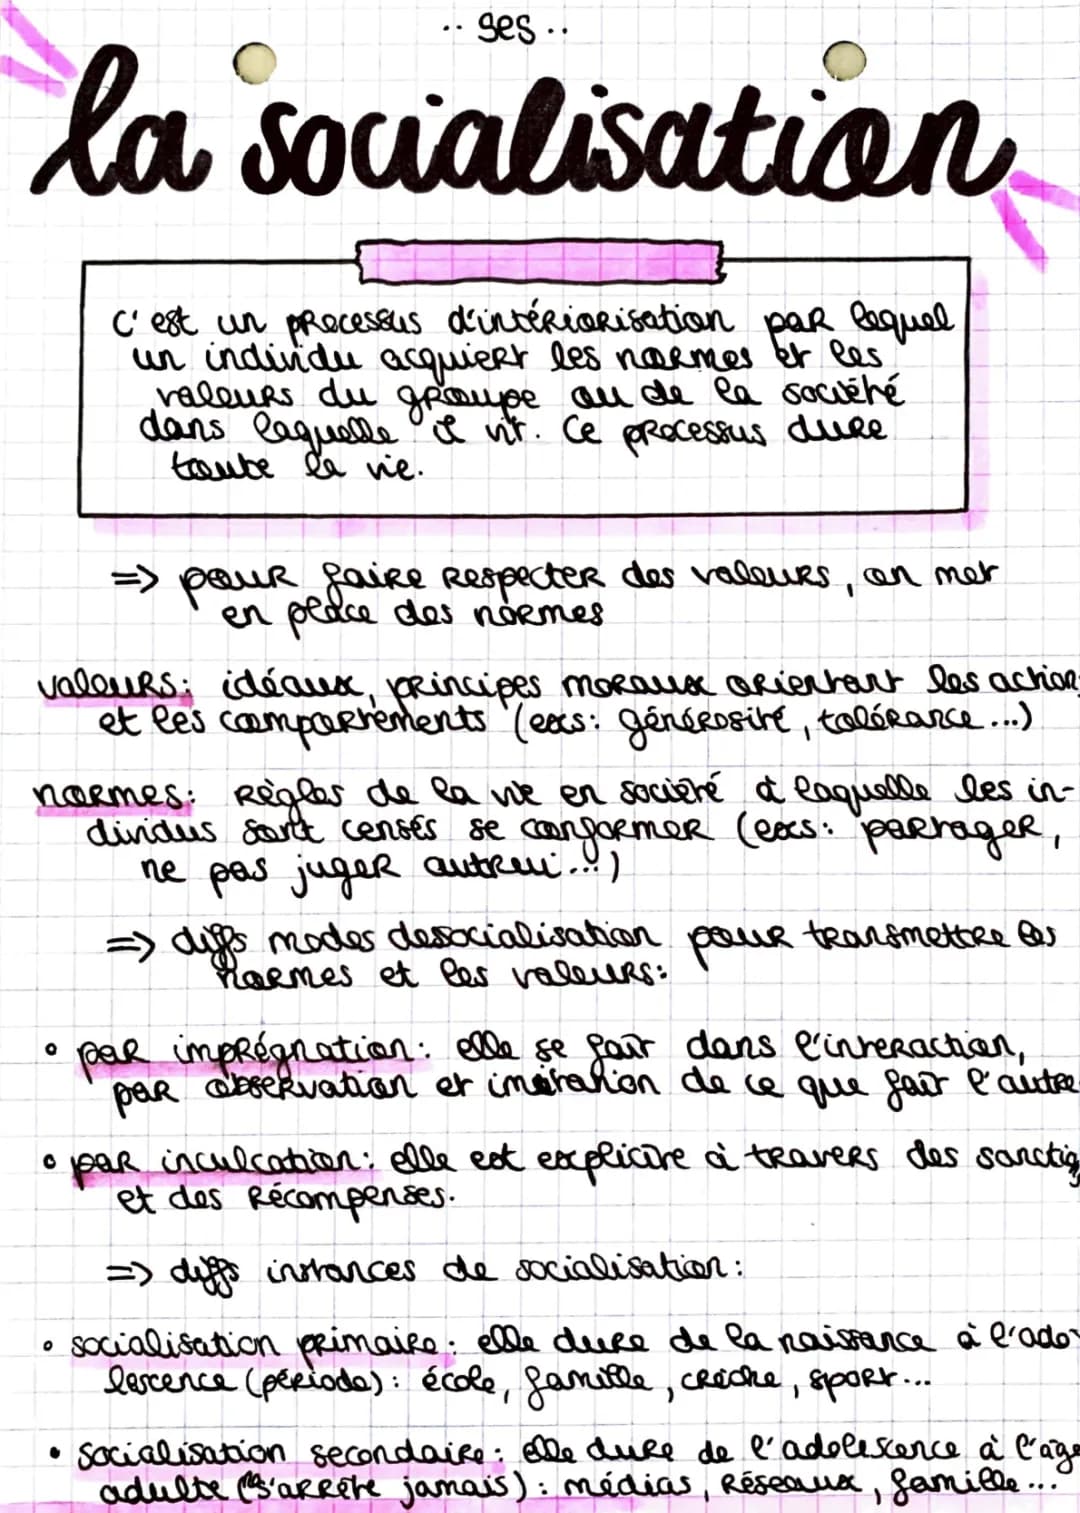 ·· ses ··
la socialisation
C'est un processus d'intériorisation par lequel
un individu acquiert les normes et les
valeurs du groupe ou de la société
dans laquelle il vit. Ce processus dure
toute la vie.
=> pour faire respecter des valeurs, on met
en place des normes
valeurs: idéaux, principes moraux orientant les action
et les comportements (exs: générosité, tolérance...)
normes: règles de la vie en société à laquelle les in-
dividus sont censés se conformer (exs: partager,
ne pas juger autrui...)
=> diffs modes desocialisation pour transmettre les
normes et les valeurs:
• par imprégnation: elle se fait dans l'interaction,
par observation et imitation de ce que fait l'autre
• par inculcation: elle est explicite à travers des sanctio
et des récompenses.
=> diffs instances de socialisation:
• socialisation primaire: elle dure de la naissance à l'ado-
lescence (période): école, famille, crèche, sport...
• socialisation secondaire: elle dure de l'adolescence à l'âge
adulte (s'arrête jamais): médias, réseaux, famille...